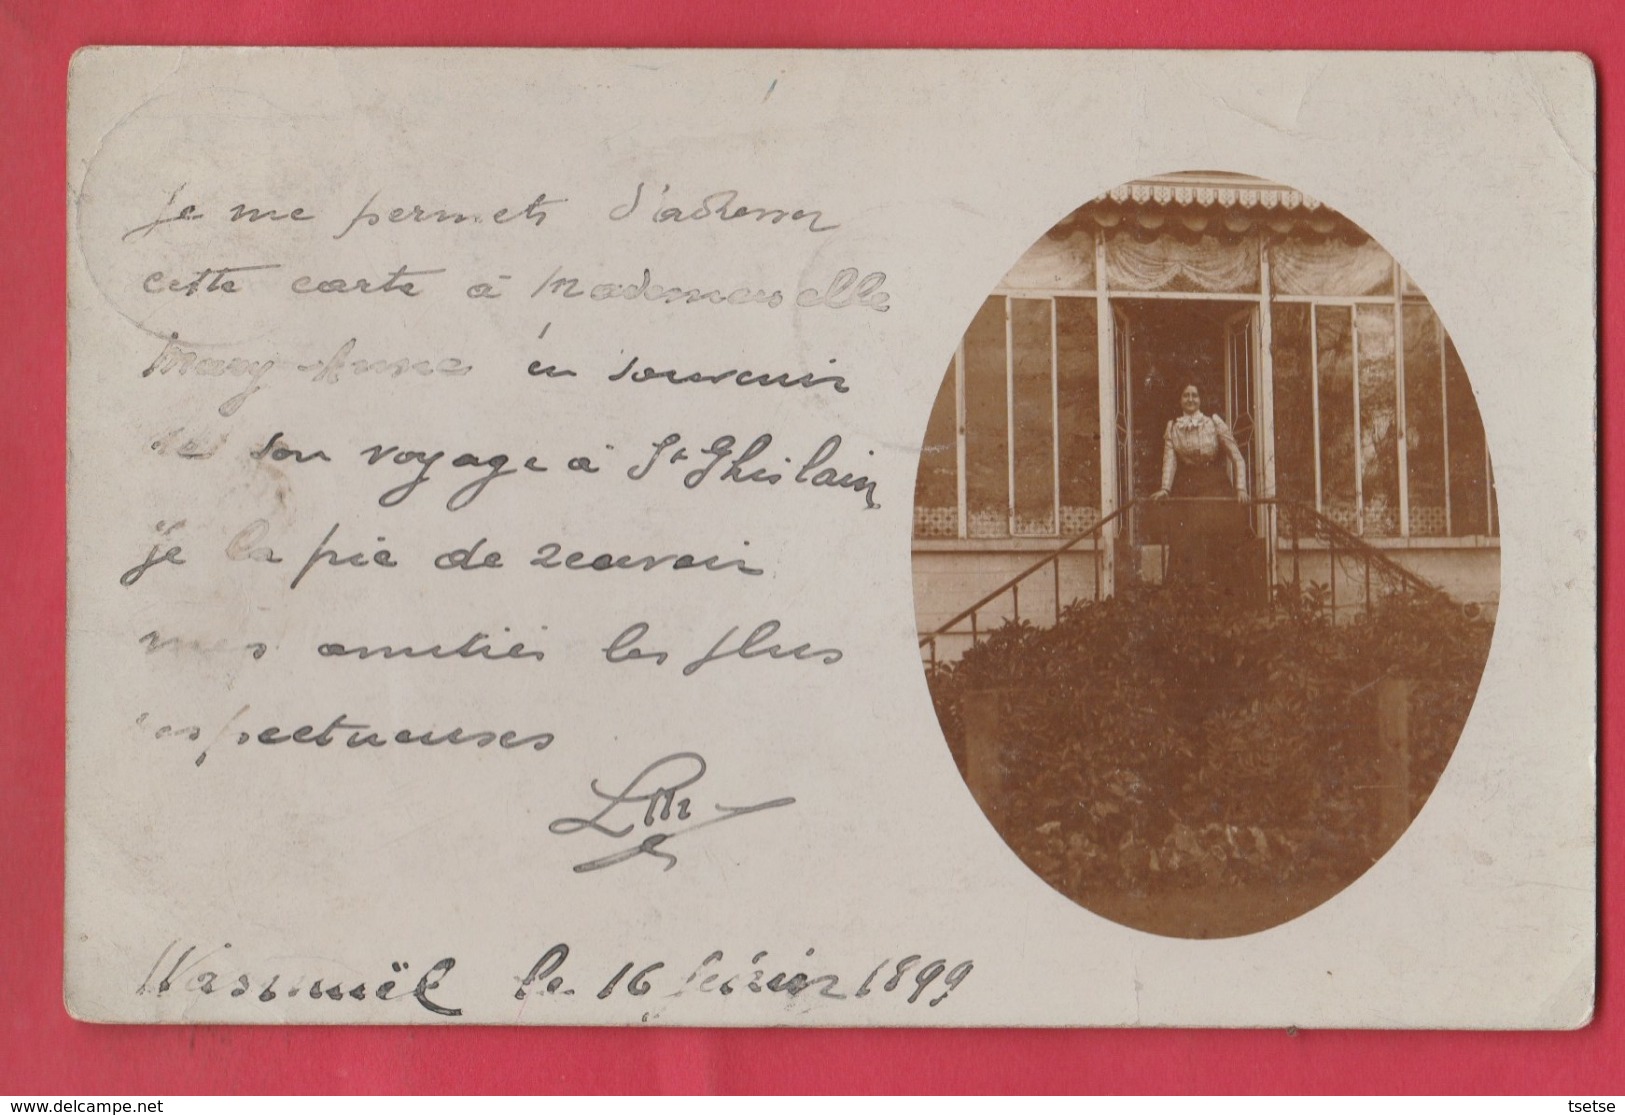 Je me permets d'adresser
cette carte à Mademoiselle
Mary-Anne en souvenir
de son voyage à St Ghislain
je la prie de recevoir
mes amitiés les plus
respectueuses
Wasmuël le 16 février 1899
delcampe.net
tsetse